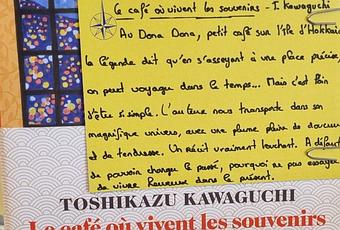 Le café où vivent les souvenirs - T. Kawaguchi
Au Dona Dona, petit café sur l'île d'Hokkaido
la légende dit qu'en s'asseyant à une place précise,
on peut voyager dans le temps... Mais c'est loin
d'être si simple. L'auteur nous transporte dans son
magnifique univers, avec une plume pleine de douceur
et de tendresse. Un récit vraiment touchant. A défaut
de pouvoir changer le passé, pourquoi ne pas essayer
de vivre heureux dans le présent.
TOSHIKAZU KAWAGUCHI
Le café où vivent les souvenirs